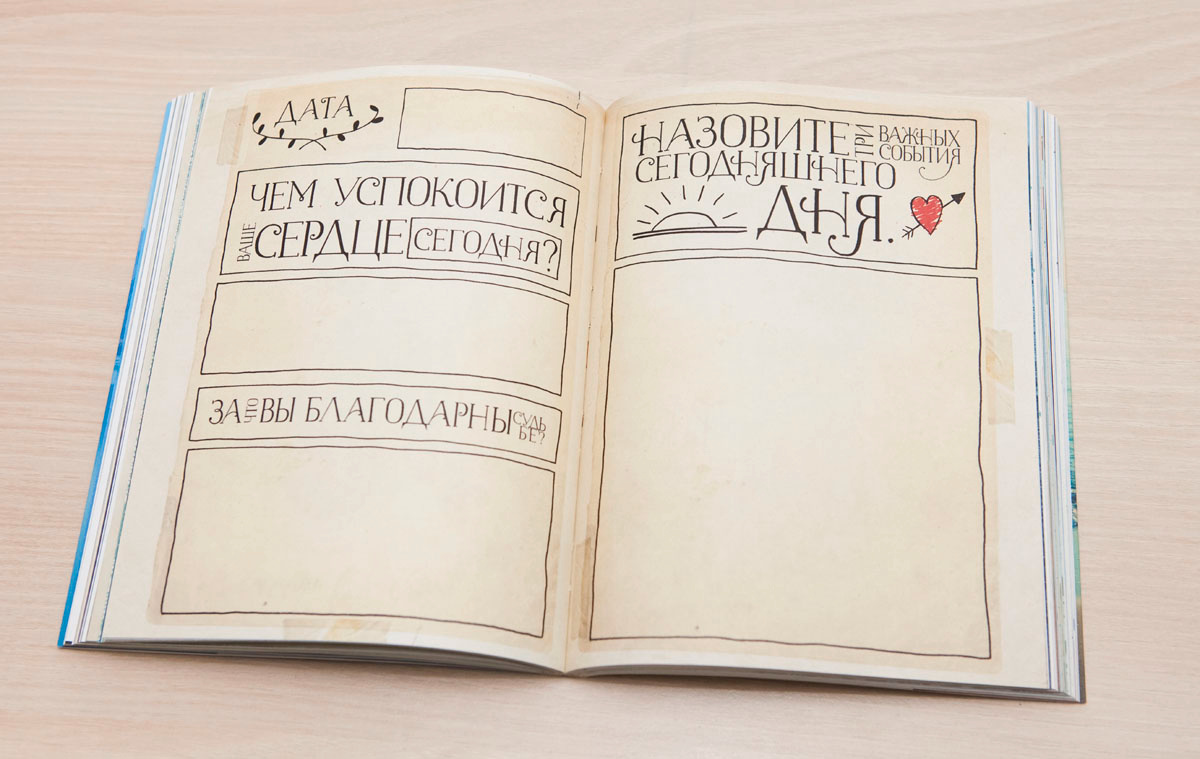 ДАТА
ЧЕМ УСПОКОИТСЯ
ВАШЕ СЕРДЦЕ СЕГОДНЯ?
ЗА ЧТО ВЫ БЛАГОДАРНЫ СУДЬ
БЕ?
НАЗОВИТЕ ТРИ ВАЖНЫХ
СОБЫТИЯ
СЕГОДНЯШНЕГО
ДНЯ.